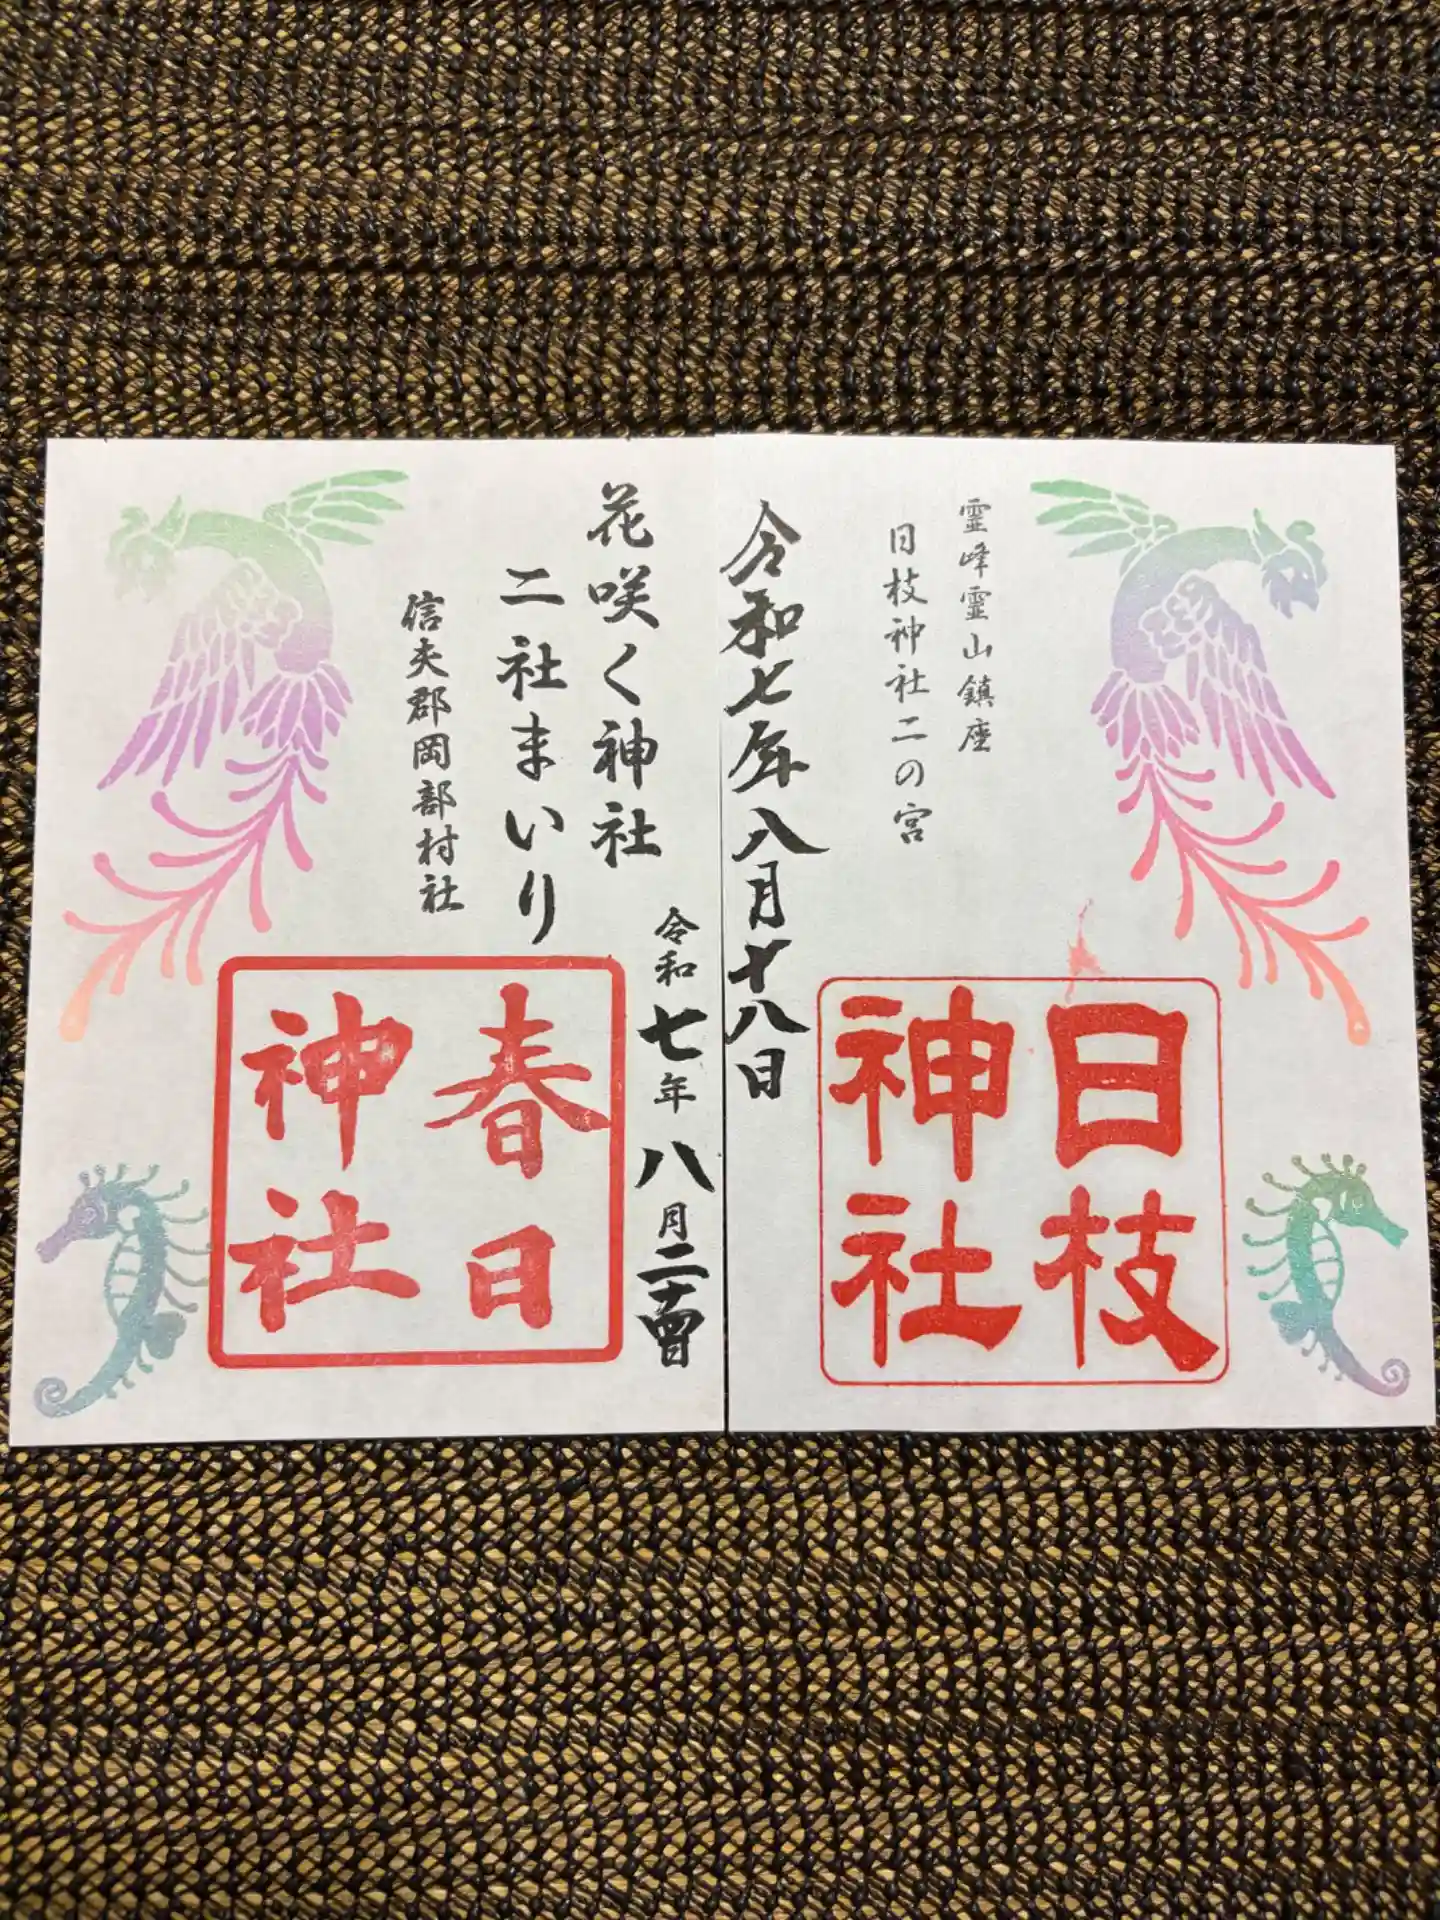 霊峰霊山鎮座
日枝神社二の宮
令和七年八月十八日
日枝
神社
花咲く神社
二社まいり
信夫郡岡部村社
令和七年八月二十四日
春日
神社